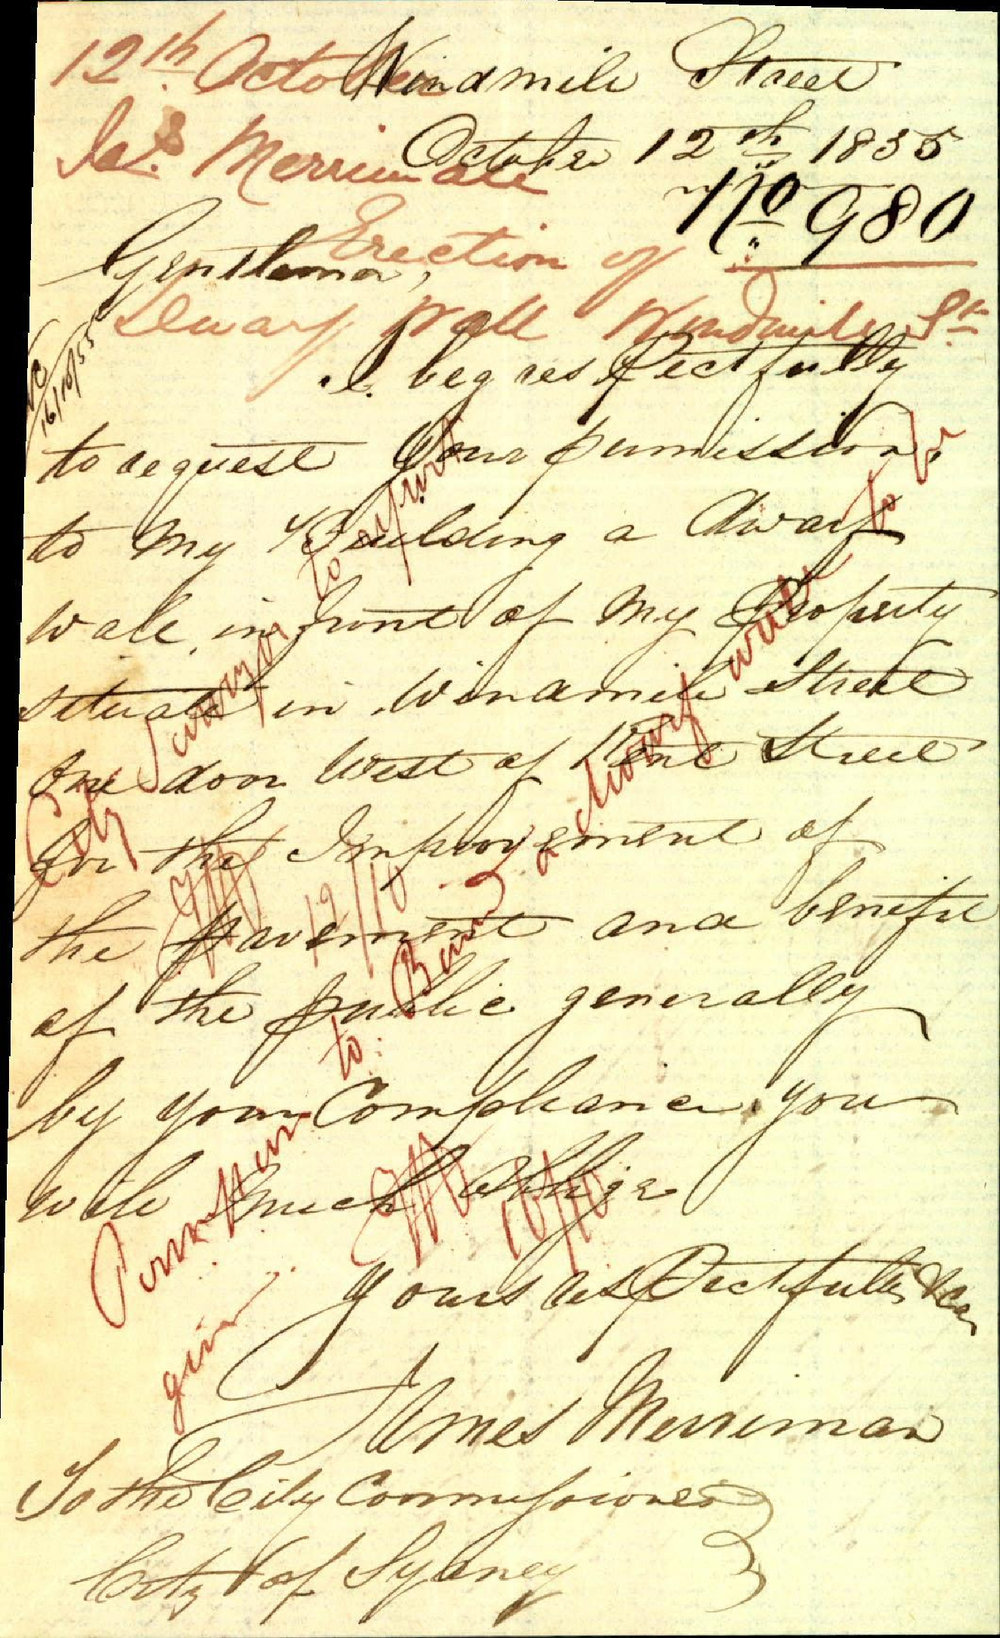 12th October
Windmile Street
October 12th 1855
Jas. Merriman
No 980
Erection of
Gentlemen,
Dwarf Wall Windmile St
I beg respectfully
16/10/55
to request your permission
to my Building a dwarf
wall, in front of my Property
situate in Windmile Street
One door West of Kent Street
for the Improvement of
the Pavement and benefit
of the public generally
by your Compliance you
will much Oblige
yours respectfully &ca
James Merriman
To the City Commissioners
City of Sydney
City Surveyor to report
12/10
Permission to Build a dwarf wall to be
given
16/10